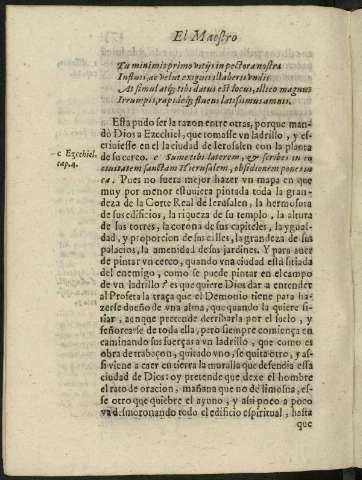 El Maestro
Tu minimis primo vitijs in pectora nostra
Influis, ac velut exiguis illaberis vndis
At simul atq; tibi datus est locus, illico magnus
Irrumpis, rapidoq; fluens latissimus amni.
Esta pudo ser la razon entre otras, porque man-
dò Dios a Ezechiel, que tomasse vn ladrillo, y es-
criuiesse en el la ciudad de Ierusalen con la planta
c Ezechiel.
cap. 4.
de su cerco. c Sume tibi laterem, & scribes in eo
ciuitatem sanctam Hierusalem, obsidionem pones in ea
ra. Pues no fuera mejor hazer vn mapa en que
muy por menor estuuiera pintada toda la gran-
deza de la Corte Real de Ierusalen, la hermosura
de sus edificios, la riqueza de su templo, la altura
de sus torres, la corona de sus capiteles, la ygual-
dad, y proporcion de sus calles, la grandeza de sus
palacios, la amenidad de sus jardines. Y para auer
de pintar vn cerco, quando vna ciudad està sitiada
del enemigo, como se puede pintar en el campo
de vn ladrillo? es que quiere Dios dar a entender
al Profeta la traça que el Demonio tiene para ha-
zerse dueño de vna alma, que quando la quiere si-
tiar, aunque pretende derribarla por el suelo, y
señorearse de toda ella, pero siempre comiença en
caminando sus fuerças a vn ladrillo, que como es
obra de trabaçon, quitado vno, se quita otro, y as-
si viene a caer en tierra la muralla que defendia essa
ciudad de Dios: oy pretende que dexe el hombre
el rato de oracion, mañana que no dè limosna, es-
se otro que quiebre el ayuno, y assi poco a poco
va desmoronando todo el edificio espiritual, hasta
que